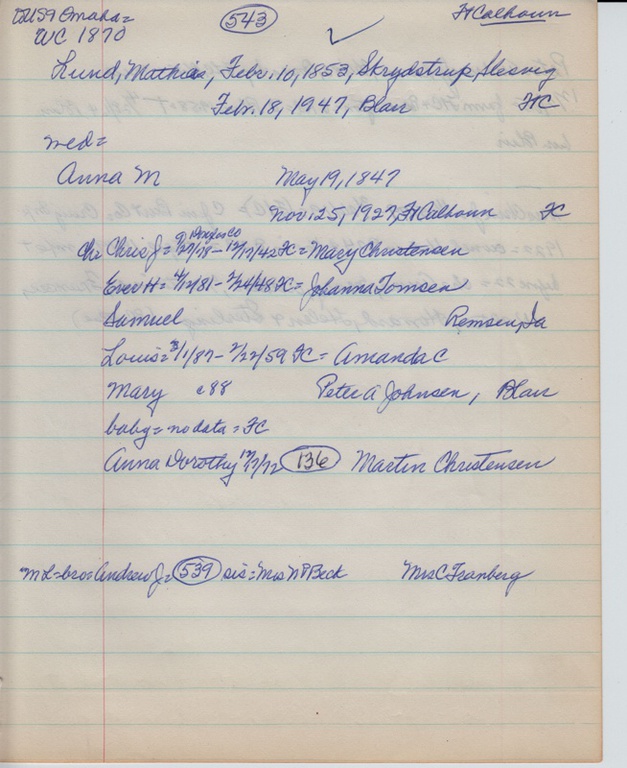 US59 Omaha= 543 Ft Calhoun
WC 1870
Lund, Mathias, Febr. 10, 1853, Skrydstrup, Slesvig
Febr. 18, 1947, Blair FC
med=
Anna M May 19, 1847
Nov. 25, 1927, Ft Calhoun FC
Douglas Co
ch= Chris J = 9/27/78 - 12/12/42 FC = Mary Christensen
Ever H = 4/12/81 - 2/24/48 FC = Johanna Tomsen
Samuel Remsen, Ia
Louis = 3/1/87 - 2/22/59 FC = Amanda C
Mary c88 Peter A Johnsen, Blair
baby = no data = FC
Anna Dorothy 136 Martin Christensen
ML = bro = Andrew J = 539 sis = Mrs N P Beck Mrs C Franberg